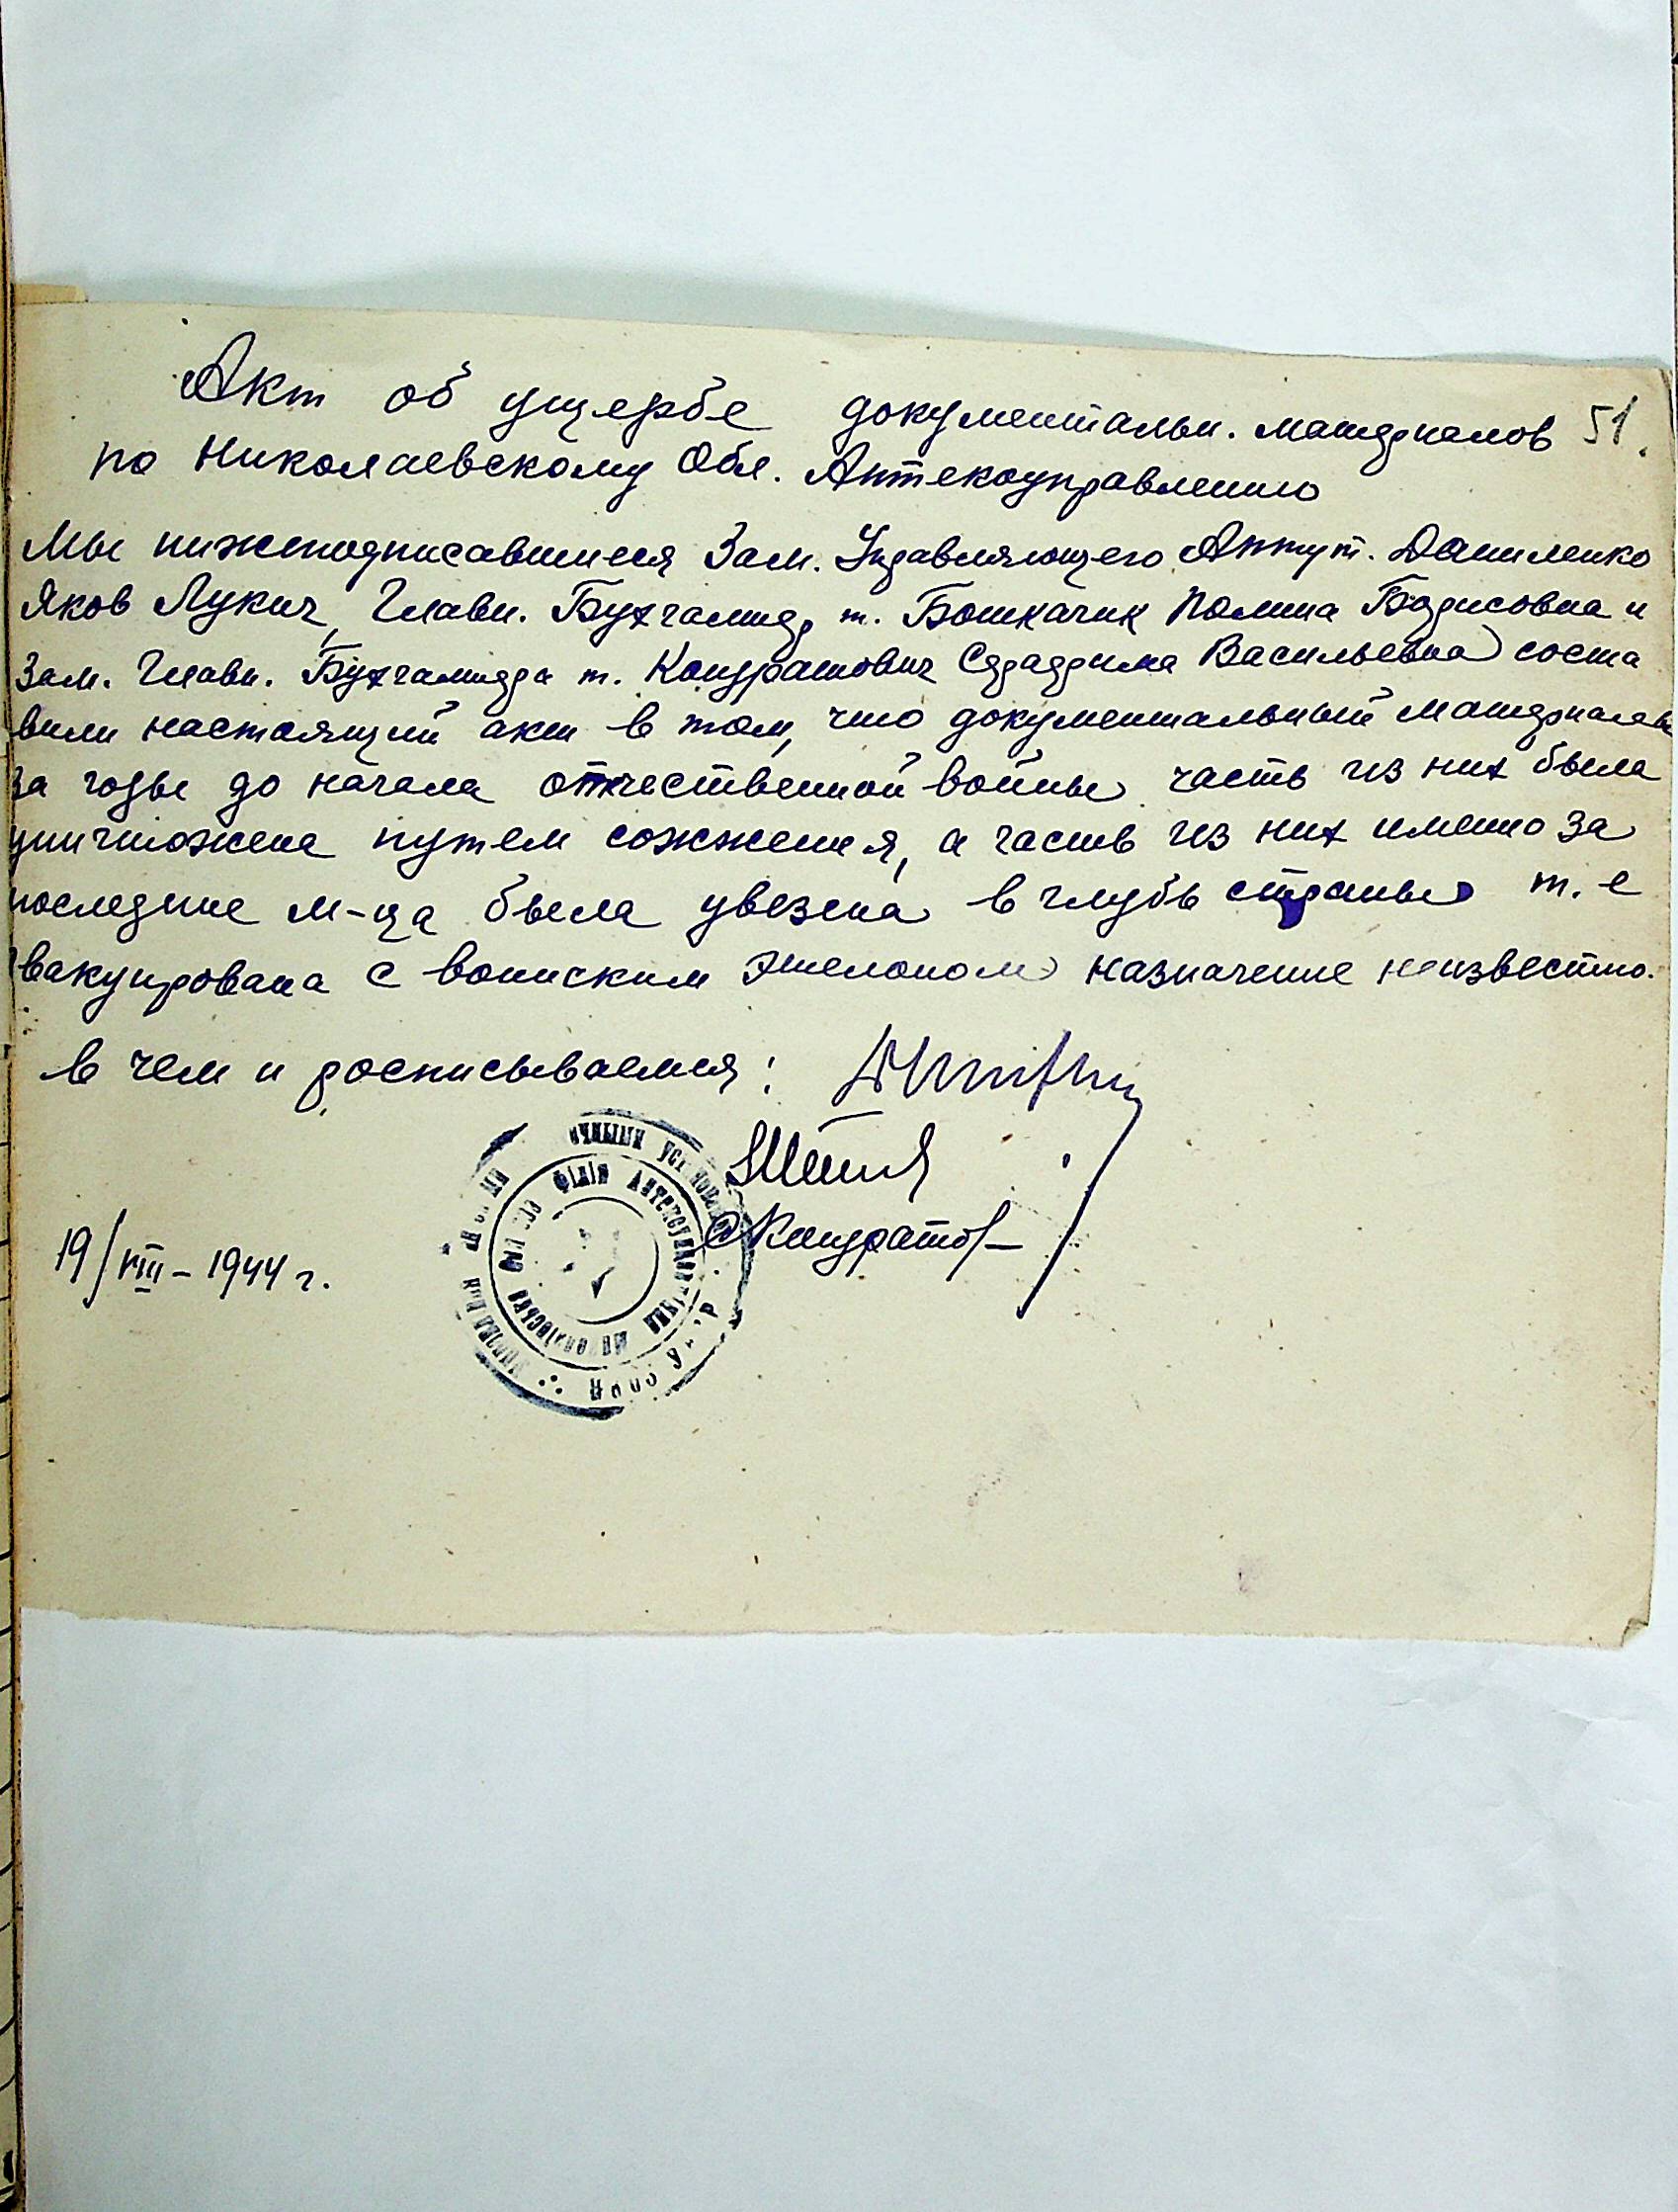 Акт об ущербе документальн. материалов 51.
по Николаевскому Обл. Аптекоуправлению
Мы нижеподписавшиеся Зам. Управляющего Аптуп. Даниленко
Яков Лукич, Главн. Бухгалтер т. Бошкачик Полина Борисовна и
Зам. Главн. Бухгалтера т. Кондратович Серафима Васильевна соста
вили настоящий акт в том, что документальный материалов
за годы до начала отечественной войны часть из них была
уничтожена путем сожжения, а часть из них имено за
последние м-ца была увезена в глубь страны т. е
эвакуирована с воинским эшелоном назначение неизвестно.
в чем и росписываемся:
Кондратов
19/VIII – 1944 г.
філія Аптекоуправління